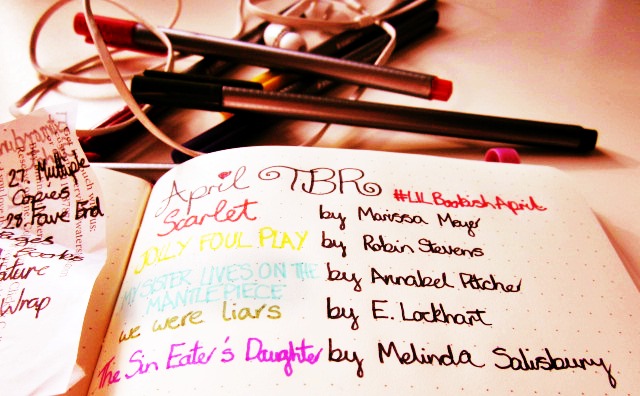 27. Multiple
Copies
28. Fave End
pages
Books
ature
Wrap
April TBR
#LilBookishApril
Scarlet by Marissa Meyer
JOLLY FOUL PLAY by Robin Stevens
MY SISTER LIVES ON THE
MANTLE PIECE by Annabel Pitcher
we were liars by E. Lockhart
The Sin Eater's Daughter by Melinda Salisbury